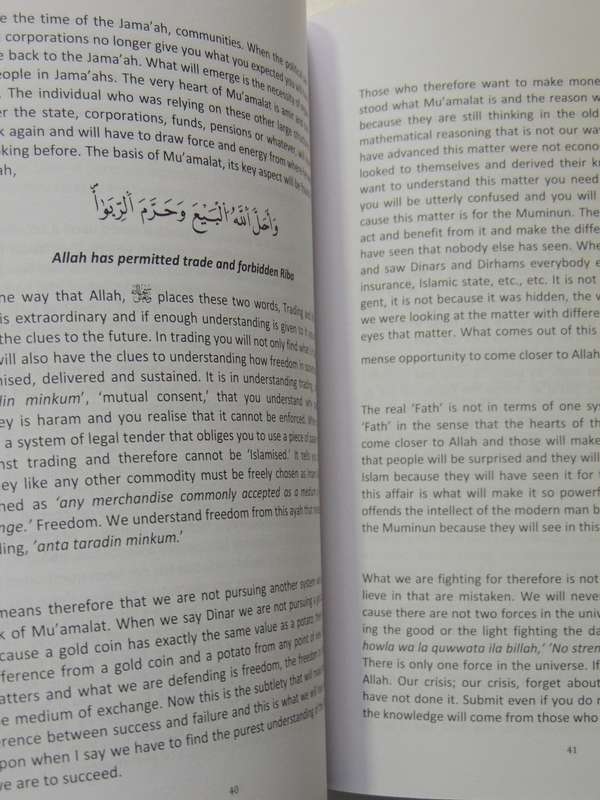 e the time of the Jama’ah, communities. When the political
corporations no longer give you what you expected you will
e back to the Jama’ah. What will emerge is the necessity of
eople in Jama’ahs. The very heart of Mu’amalat is amir and
. The individual who was relying on these other large
er the state, corporations, funds, pensions or whatever, will
k again and will have to draw force and energy from where
oking before. The basis of Mu’amalat, its key aspect will be
ah,
وَأَحَلَّ ٱللَّهُ ٱلْبَيْعَ وَحَرَّمَ ٱلرِّبَوٰا۟
Allah has permitted trade and forbidden Riba
he way that Allah, ﷻ places these two words, Trading and
is extraordinary and if enough understanding is given to it
the clues to the future. In trading you will not only find what
will also have the clues to understanding how freedom in
nised, delivered and sustained. It is in understanding trading,
din minkum’, ‘mutual consent,’ that you understand why
ey is haram and you realise that it cannot be enforced. When
a system of legal tender that obliges you to use a piece of
nst trading and therefore cannot be ‘Islamised.’ It tells you
ney like any other commodity must be freely chosen as
ned as ‘any merchandise commonly accepted as a medium
nge.’ Freedom. We understand freedom from this ayah that
ding, ‘anta taradin minkum.’
means therefore that we are not pursuing another system
k of Mu’amalat. When we say Dinar we are not pursuing a
cause a gold coin has exactly the same value as a potato.
ifference from a gold coin and a potato from any point of
atters and what we are defending is freedom, the freedom
he medium of exchange. Now this is the subtlety that will
erence between success and failure and this is what we will
upon when I say we have to find the purest understanding of
we are to succeed.
40
Those who therefore want to make mone
stood what Mu’amalat is and the reason w
because they are still thinking in the old
mathematical reasoning that is not our wa
have advanced this matter were not econo
looked to themselves and derived their kno
want to understand this matter you need
you will be utterly confused and you will
cause this matter is for the Muminun. The
act and benefit from it and make the differ
have seen that nobody else has seen. Whe
and saw Dinars and Dirhams everybody e
insurance, Islamic state, etc., etc. It is not
gent, it is not because it was hidden, the v
we were looking at the matter with differe
eyes that matter. What comes out of this
mense opportunity to come closer to Allah
The real ‘Fath’ is not in terms of one sys
‘Fath’ in the sense that the hearts of th
come closer to Allah and those will make
that people will be surprised and they will
Islam because they will have seen it for t
this affair is what will make it so powerf
offends the intellect of the modern man b
the Muminun because they will see in this
What we are fighting for therefore is not
lieve in that are mistaken. We will neve
cause there are not two forces in the univer
ing the good or the light fighting the da
howla wa la quwwata ila billah,’ ‘No stren
There is only one force in the universe. If
Allah. Our crisis; our crisis, forget about
have not done it. Submit even if you do n
the knowledge will come from those who
41